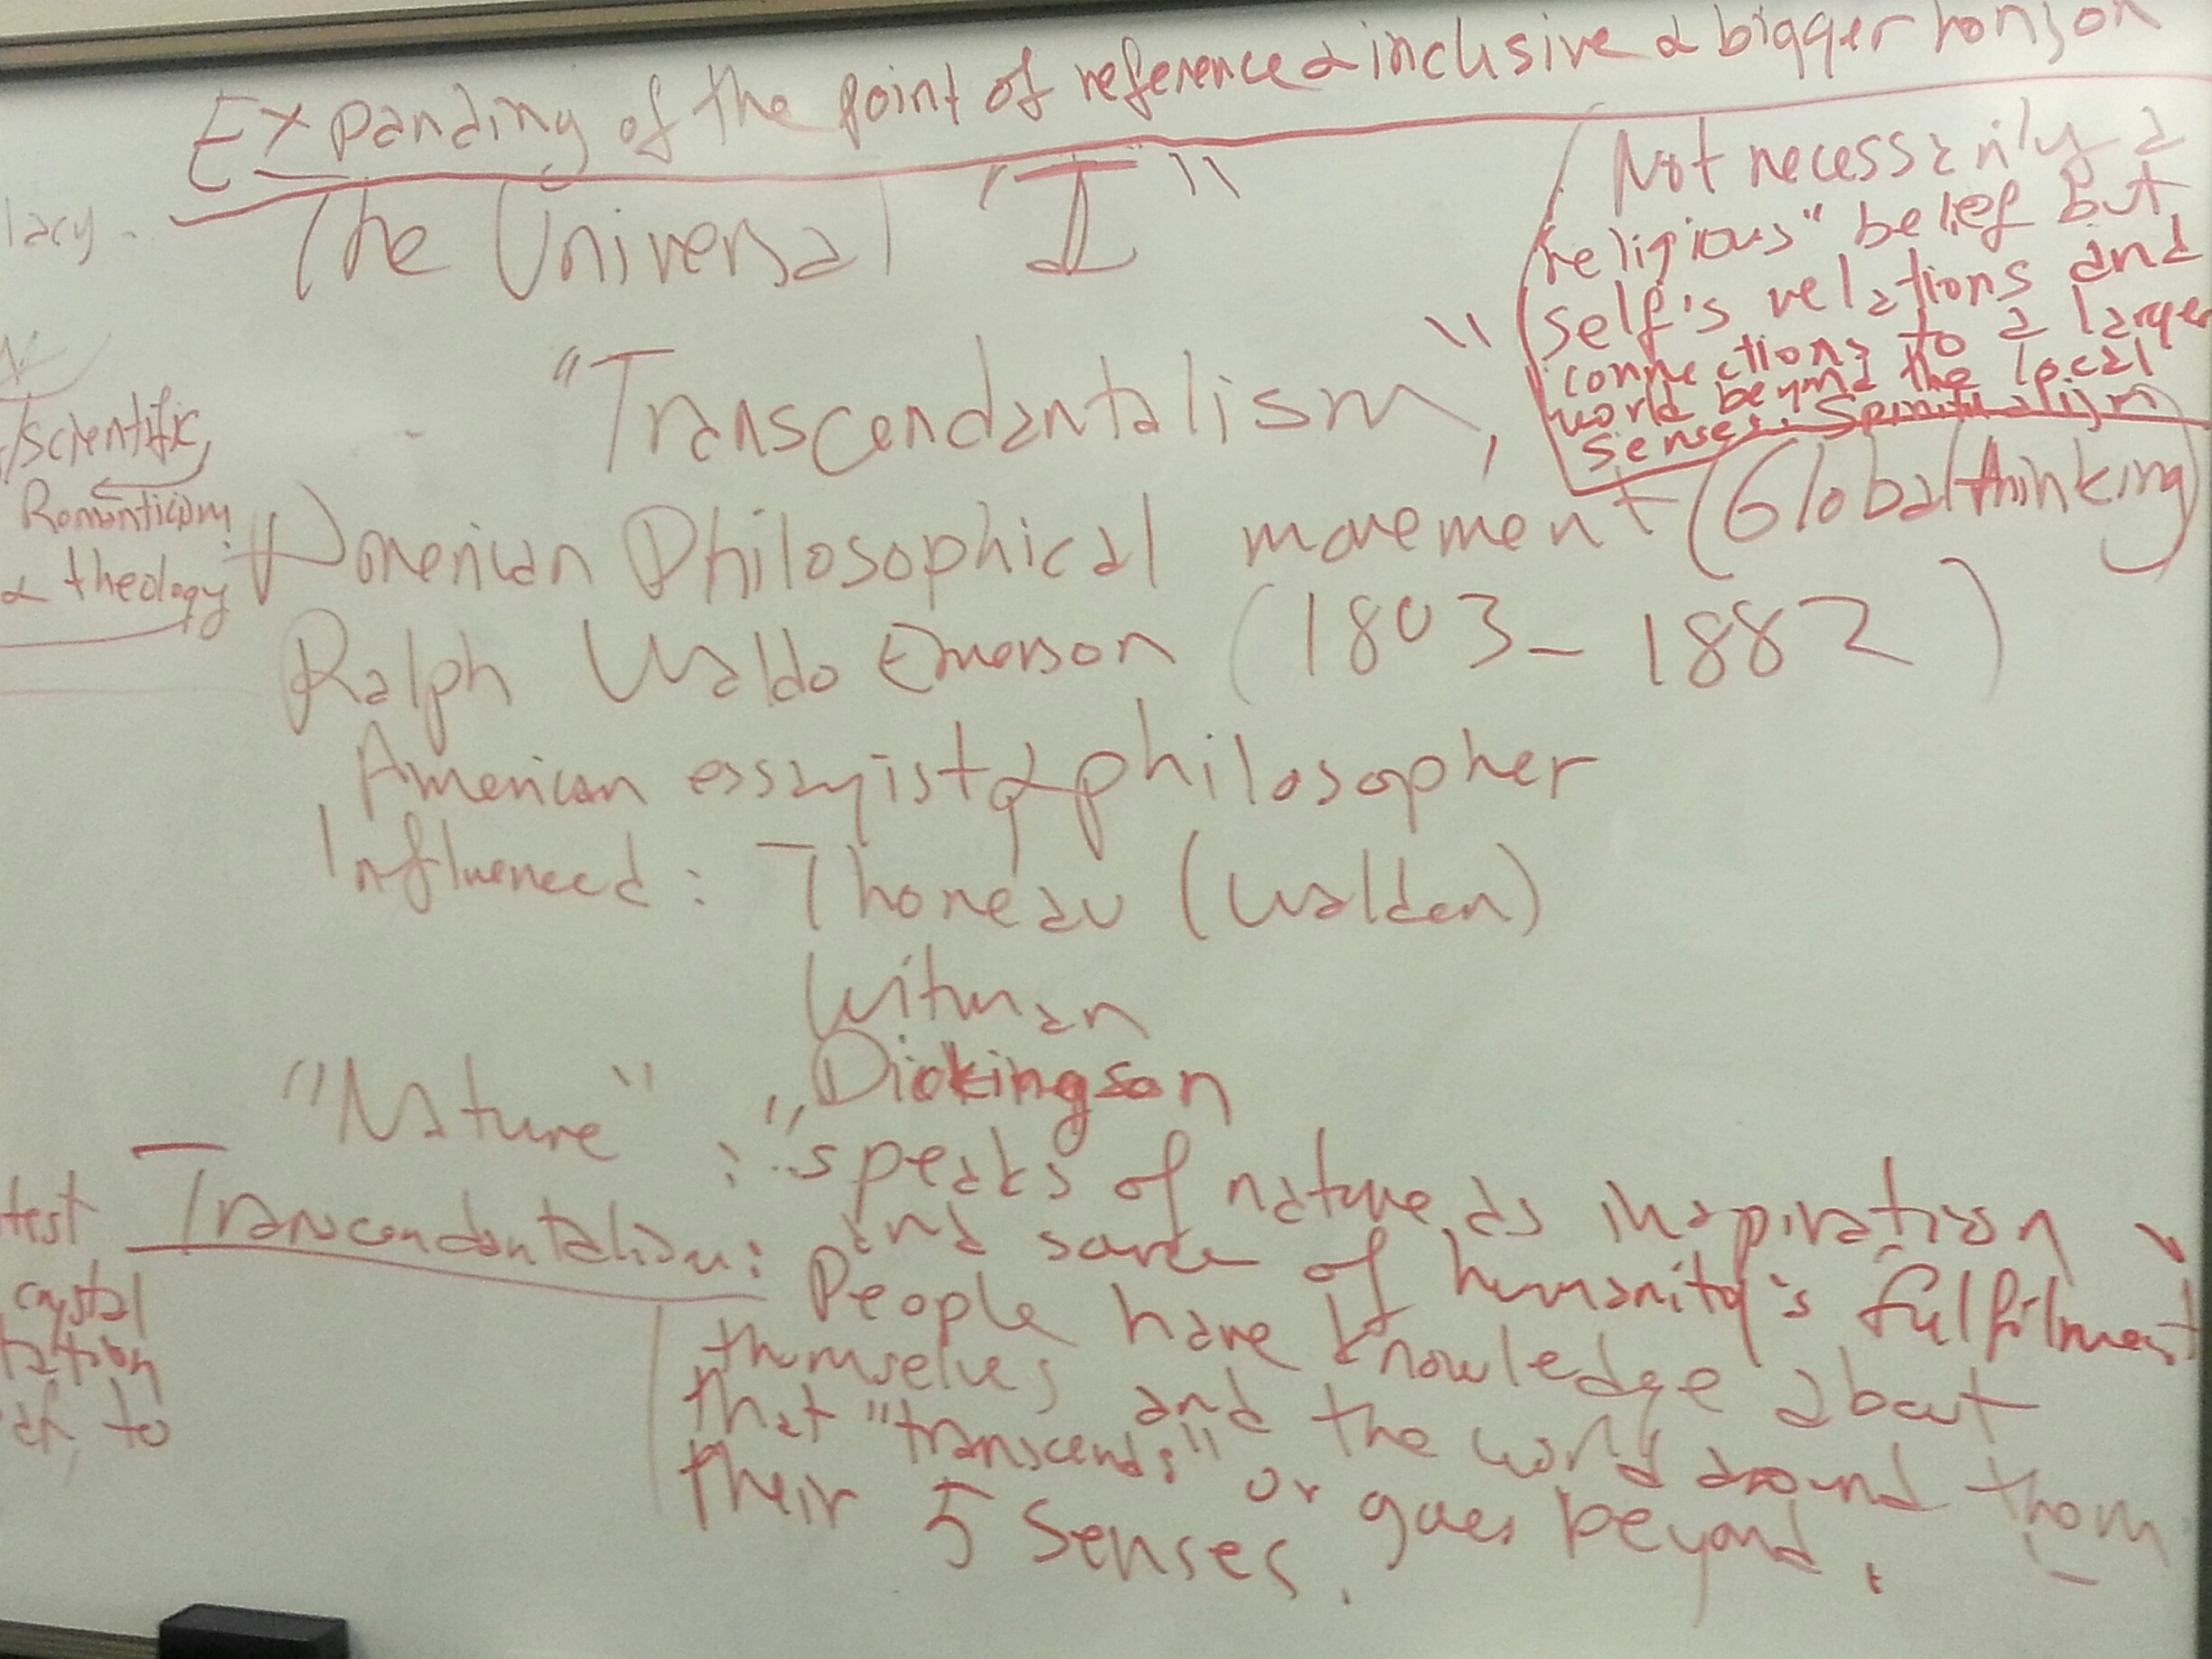 Expanding of the point of reference & inclusive & bigger horizon
The Universal "I"
Not necessarily a
religious" belief but
self's relations and
connections to a larger
world beyond the local
senses. Spiritualism
"Transcendantalism",
American Philosophical movement (Global thinking)
Ralph Waldo Emerson (1803-1882)
American essayist & philosopher
Influenced: Thoreau (Walden)
Witman
Dickingson
"Nature": "speaks of nature as inspiration
and source of humanity's fulfilment
Transcendantalism: People have knowledge about
themselves and the world around them
that "transcends" or goes beyond
their 5 senses.
lacy.
/scientific,
Romanticism
& theology
test
crystal
to